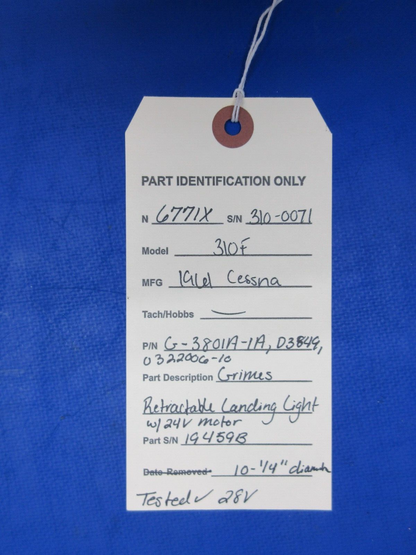 PART IDENTIFICATION ONLY
N 6771X S/N 310-0071
Model 310F
MFG 1961 Cessna
Tach/Hobbs —
P/N G-3801A-1A, D3849,
0322006-10
Part Description Grimes
Retractable Landing Light
w/ 24V motor
Part S/N 19459B
Date Removed 10-1/4" diameter
Tested ✓ 28V